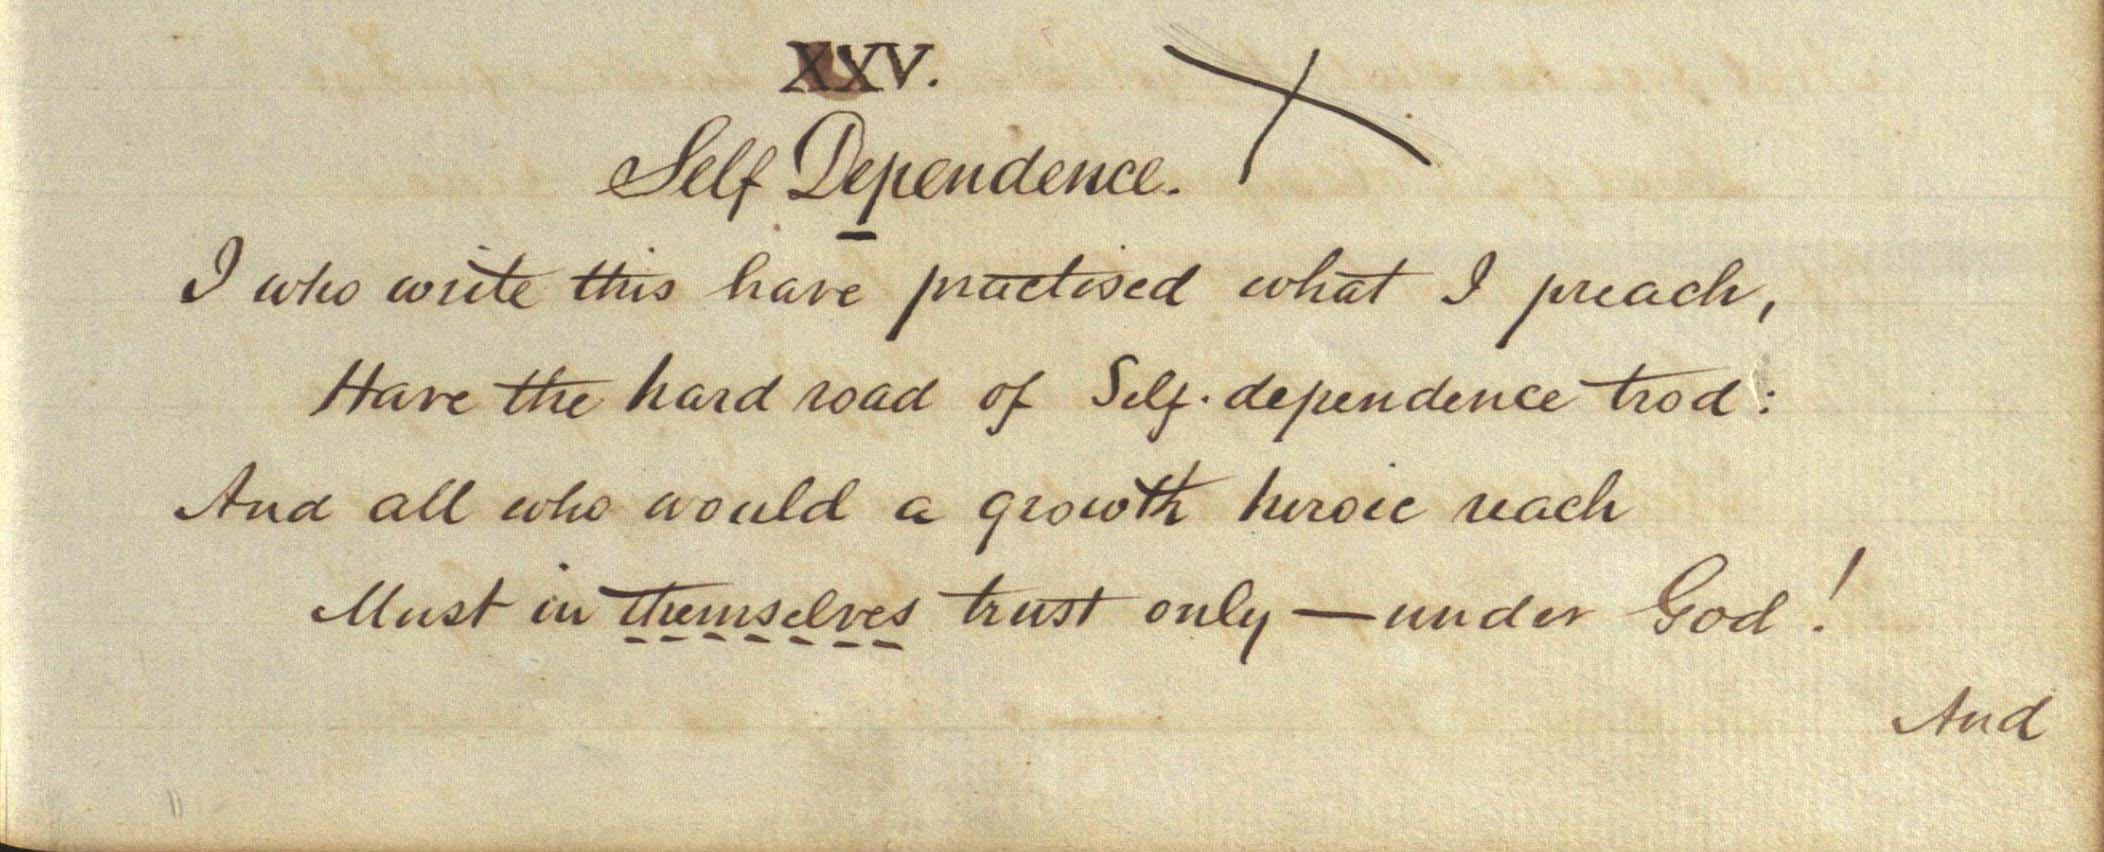 XXV.
Self Dependence.
I who write this have practised what I preach,
Have the hard road of Self-dependence trod:
And all who would a growth heroic reach
Must in themselves trust only — under God!
And